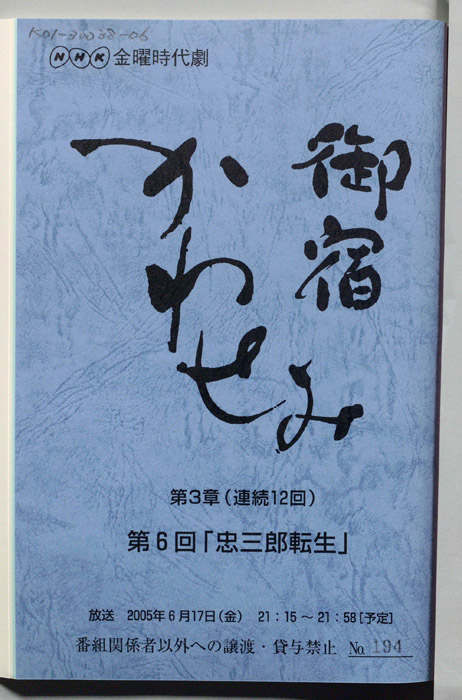 K01-30038-06
NHK 金曜時代劇
御宿
かわせみ
第3章(連続12回)
第6回「忠三郎転生」
放送 2005年6月17日(金) 21:15～21:58[予定]
番組関係者以外への譲渡・貸与禁止 No. 194